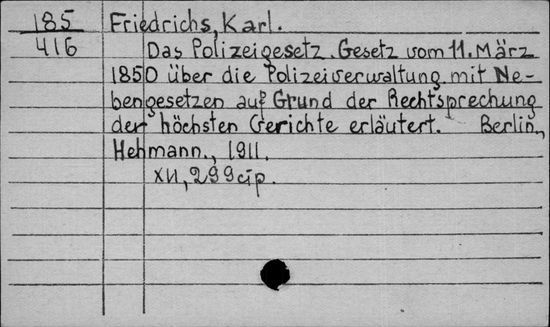 185 Friedrichs, Karl.
416 Das Polizeigesetz. Gesetz vom 11. März
1850 über die Polizeiverwaltung mit Ne-
bengesetzen auf Grund der Rechtsprechung
der höchsten Gerichte erläutert. Berlin,
Hehmann., 1911.
XII, 299 cтp.